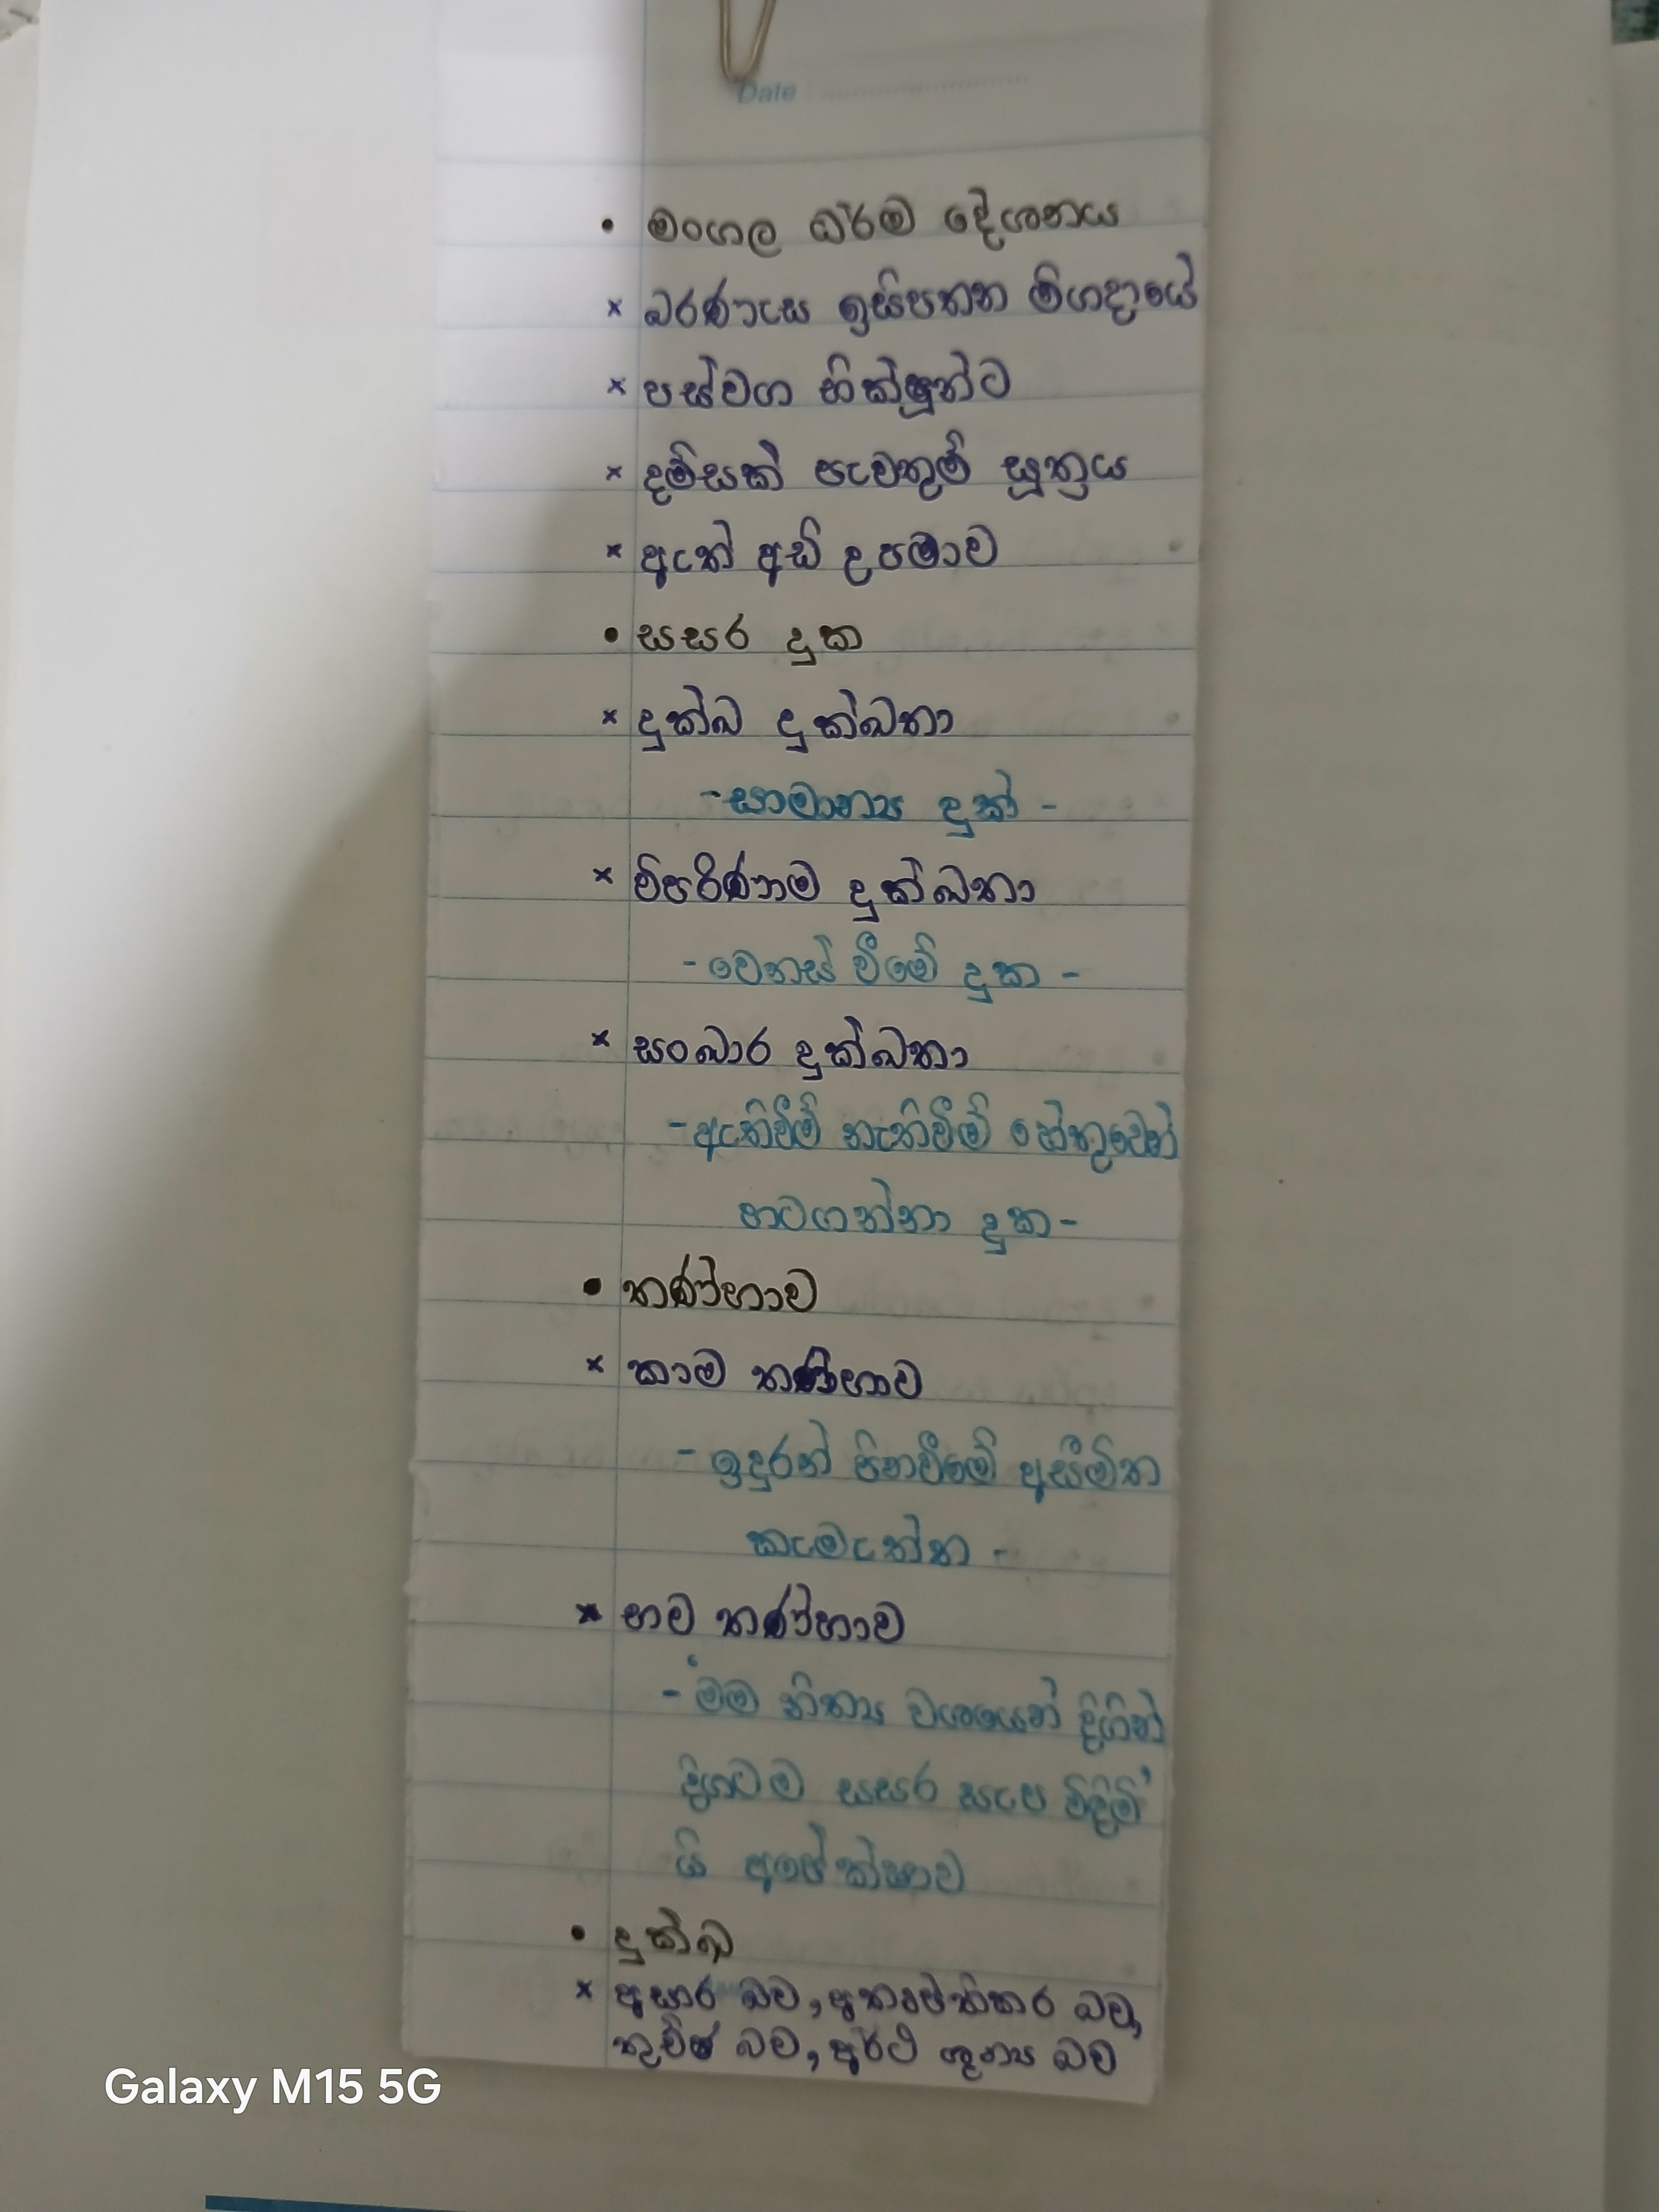 Date
• මංගල ධර්ම දේශනය
× බරණැස ඉසිපතන මිගදායේ
× පස්වග භික්ෂූන්ට
× දම්සක් පැවතුම් සූත්‍රය
× ඇත් අඩි උපමාව
• සසර දුක
× දුක්ඛ දුක්ඛතා
- සාමාන්‍ය දුක් -
× විපරිණාම දුක්ඛතා
- වෙනස් වීමේ දුක -
× සංඛාර දුක්ඛතා
- ඇතිවීම් නැතිවීම් හේතුවෙන්
හටගන්නා දුක -
• තණ්හාව
× කාම තණ්හාව
- ඉඳුරන් පිනවීමේ අසීමිත
කැමැත්ත -
× භව තණ්හාව
- 'මම නිත්‍ය වශයෙන් දිගින්
දිගටම සසර සැප විඳිමි'
යි අපේක්ෂාව
• දුක්ඛ
× අසාර බව, අතෘප්තිකර බව,
තුච්ඡ බව, අර්ථ ශූන්‍ය බව
Galaxy M15 5G